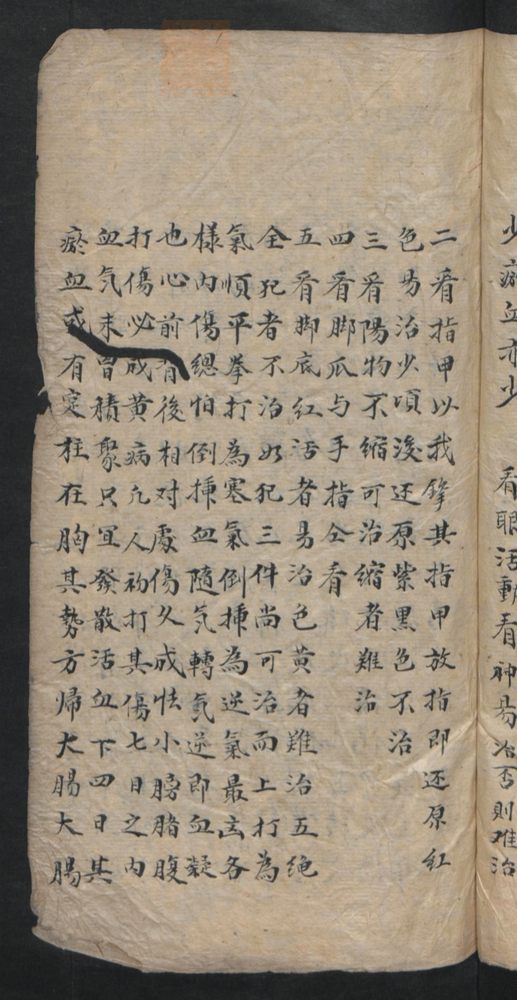 少瘀血亦少　看眼活動看神易治否則难治
二看指甲以我鋒其指甲放指即还原紅
色易治少頃後还原紫黑色不治
三看陽物不縮可治縮者難治
四看脚爪与手指仝看
五看脚底紅活者易治色黄者難治五绝
全犯者不治如犯三件尚可治而上打為
氣順平拳打為寒氣倒揷為逆氣最言各
樣内傷總怕倒揷血隨気轉気逆即血凝
也心前背後相对處傷久成怯小膀腊腹
打傷必成黄病凢人初打其傷七日之内
血気未曾積聚只宜發散活血下四日其
瘀血或有定柱在胸其勢方歸大腸大腸